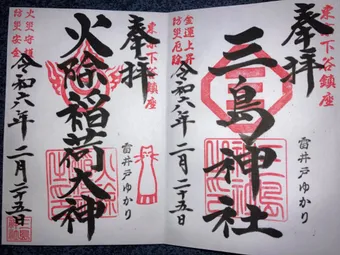 東京下谷鎮座
奉拝
金運上昇
防災厄除
三島神社
雷井戸ゆかり
令和六年二月二十五日
東京下谷鎮座
奉拝
火災守護
防災安全
火除稲荷大神
雷井戸ゆかり
令和六年二月二十五日